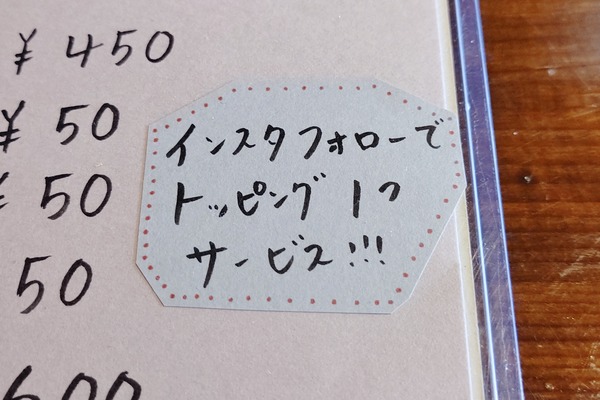 ¥ 450
¥ 50
¥ 50
50
600
インスタフォローで
トッピング 1つ
サービス!!!